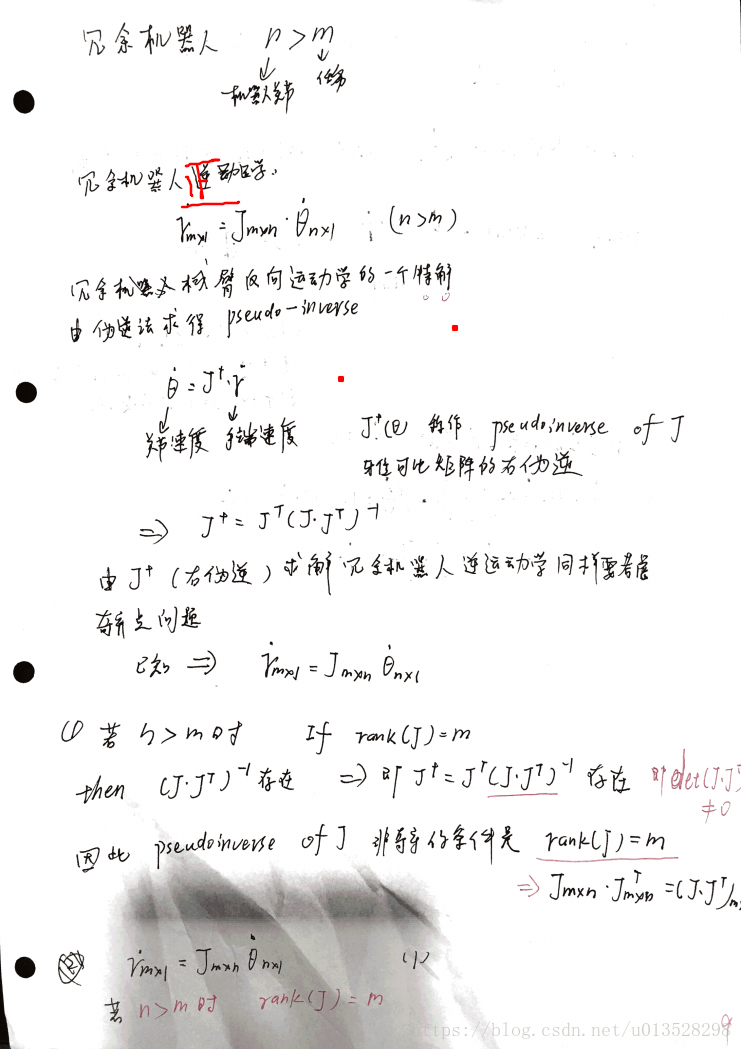 冗余机器人 n > m
机器人关节 任务
冗余机器人逆运动学.
ṙm×1 = Jm×n · θ̇n×1 ; (n>m)
冗余机器人机械臂反向运动学的一个特解
由伪逆法求得 pseudo-inverse
θ̇ = J⁺·ṙ
关节速度 末端速度
J⁺(θ) 称作 pseudoinverse of J
雅可比矩阵的右伪逆
⇒ J⁺ = Jᵀ(J·Jᵀ)⁻¹
由 J⁺ (右伪逆) 求解冗余机器人逆运动学同样要考虑
奇异点问题
已知 ⇒ ṙm×1 = Jm×n θ̇n×1
(1) 若 n > m 时 If rank(J) = m
then (J·Jᵀ)⁻¹ 存在 ⇒ 即 J⁺ = Jᵀ(J·Jᵀ)⁻¹ 存在 即 det(J·Jᵀ)
≠0
因此 pseudoinverse of J 非奇异的条件是 rank(J) = m
⇒ Jm×n · Jᵀm×n = (J·Jᵀ)m
(2) ṙm×1 = Jm×n θ̇n×1 (1)
若 n > m 时 rank(J) = m
https://blog.csdn.net/u013528298
9